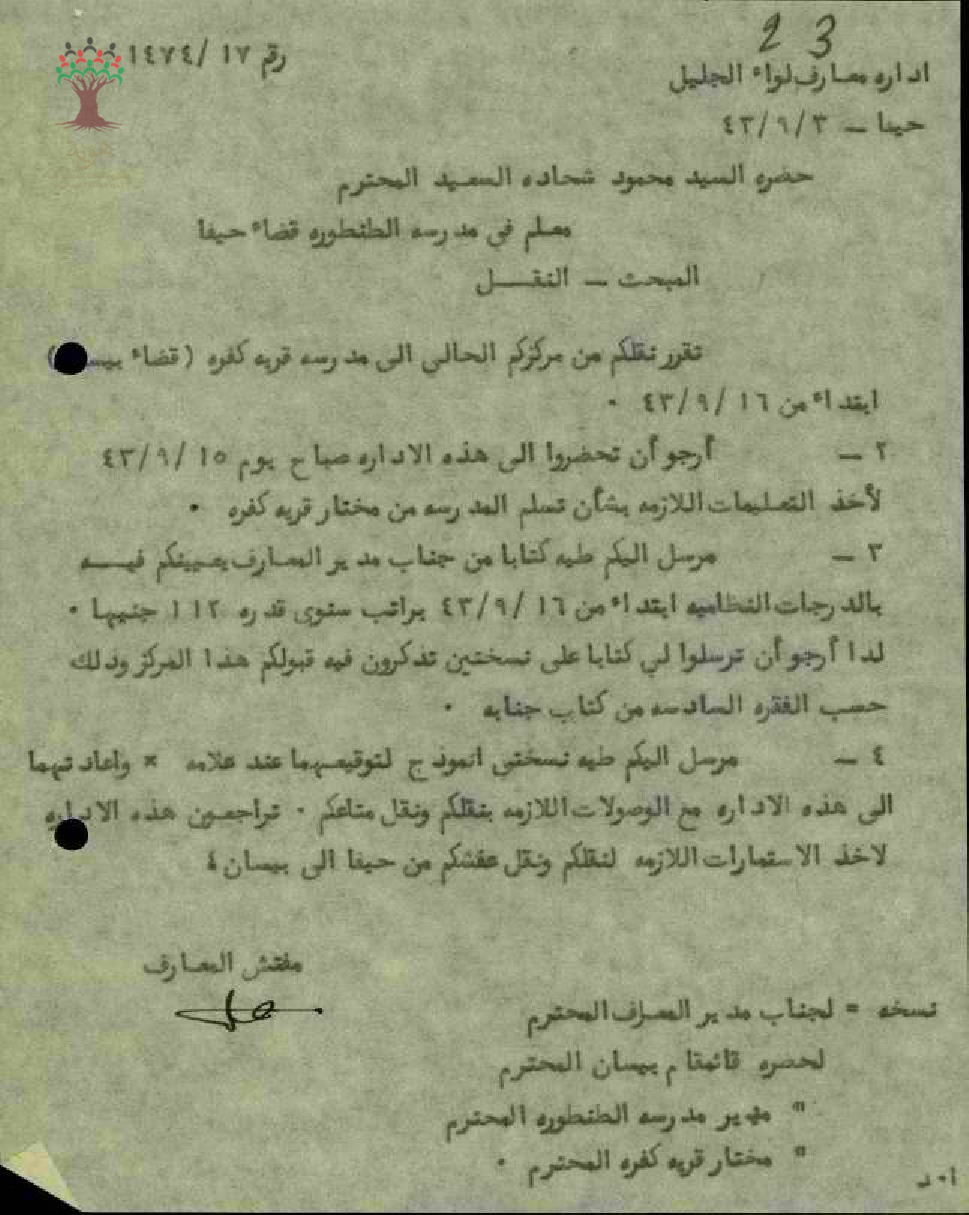 23
رقم ١٧ /١٤٧٤
اداره معارف لواء الجليل
حيفا — ٤٣/٩/٣
حضره السيد محمود شحاده السعيد المحترم
معلم في مدرسه الطنطوره قضاء حيفا
المبحث — النقـــل
تقرر نقلكم من مركزكم الحالي الى مدرسه قريه كفره (قضاء بيسان)
ابتداء من ١٦ /٤٣/٩ ٠
٢ — أرجو أن تحضروا الى هذه الاداره صباح يوم ١٥ /٤٣/٩
لأخذ التعليمات اللازمه بشأن تسلم المدرسه من مختار قريه كفره ٠
٣ — مرسل اليكم طيه كتابا من جناب مدير المعارف يعيينكم فيـــه
بالدرجات النظاميه ابتداء من ١٦ /٤٣/٩ براتب سنوى قدره ١١٢ جنيها ٠
لذا أرجو أن ترسلوا لي كتابا على نسختين تذكرون فيه قبولكم هذا المركز وذلك
حسب الفقره السادسه من كتاب جنابه ٠
٤ — مرسل اليكم طيه نسختى انموذج لتوقيعهما عند علامه × واعادتهما
الى هذه الاداره مع الوصولات اللازمه بنقلكم ونقل متاعكم ٠ تراجعون هذه الاداره
لاخذ الاستمارات اللازمه لنقلكم ونقل عفشكم من حيفا الى بيسان ٤
مفتش المعارف
نسخه = لجناب مدير المعارف المحترم
لحضره قائمقام بيسان المحترم
" مدير مدرسه الطنطوره المحترم
" مختار قريه كفره المحترم ٠
ا٠د